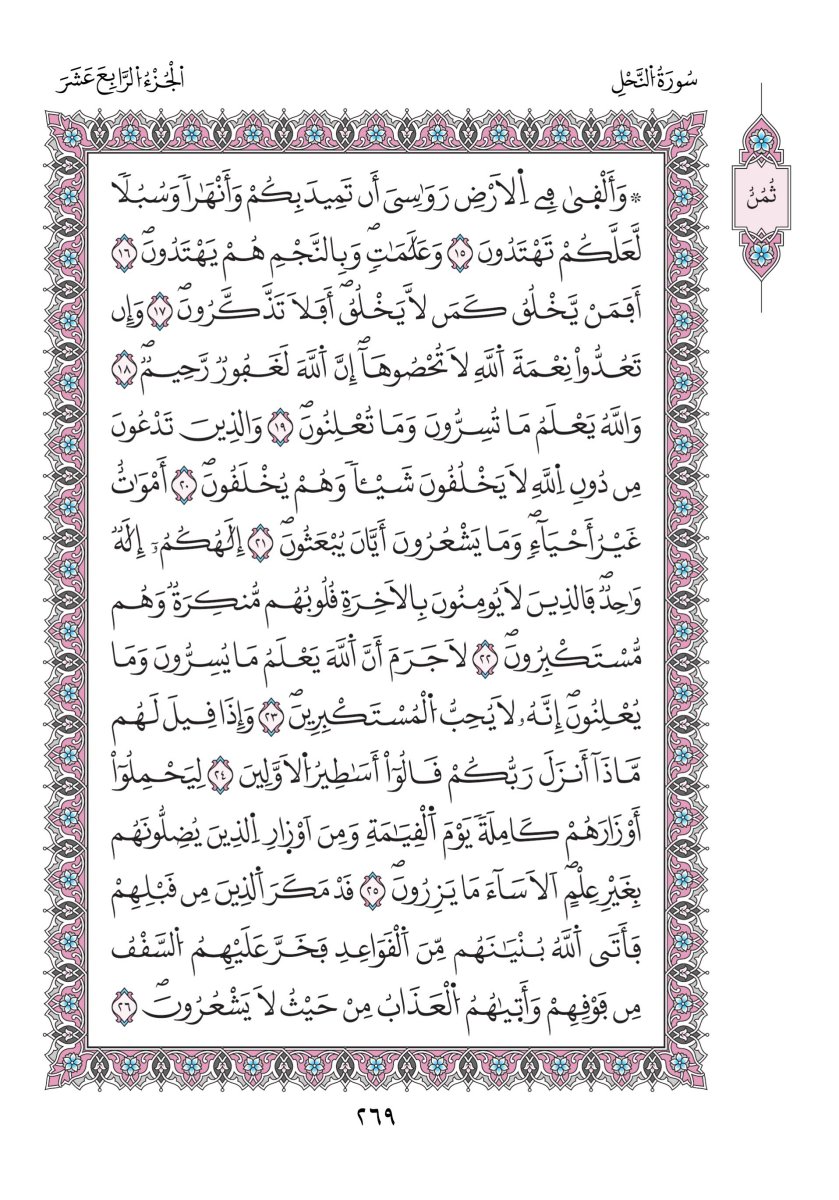 سُورَةُ اُ۬لنَّحْلِ
اَ۬لْجُزْءُ اُ۬لرَّابِعَ عَشَرَ
ثُمُنُ
۞ وَأَلْقىٰ فِے اِ۬لَارْضِ رَوَٰسِىَ أَن تَمِيدَ بِكُمْ وَأَنْهَٰراٗ وَسُبُلاٗ
لَّعَلَّكُمْ تَهْتَدُونَ ١٥ وَعَلَٰمَٰتٖۖ وَبِالنَّجْمِ هُمْ يَهْتَدُونَۖ ١٦
أَفَمَنْ يَّخْلُقُ كَمَن لَّا يَخْلُقُۖ أَفَلَا تَذَّكَّرُونَۖ ١٧ وَإِن
تَعُدُّواْ نِعْمَةَ اَ۬للَّهِ لَا تُحْصُوهَآۖ إِنَّ اَ۬للَّهَ لَغَفُورٞ رَّحِيمٞۖ ١٨
وَاللَّهُ يَعْلَمُ مَا تُسِرُّونَ وَمَا تُعْلِنُونَۖ ١٩ وَالذِينَ تَدْعُونَ
مِن دُونِ اِ۬للَّهِ لَا يَخْلُقُونَ شَيْـٔاٗ وَهُمْ يُخْلَقُونَۖ ٢٠ أَمْوَٰتٌ
غَيْرُ أَحْيَآءٖۖ وَمَا يَشْعُرُونَ أَيَّانَ يُبْعَثُونَۖ ٢١ إِلَٰهُكُمُۥٓ إِلَٰهٞ
وَٰحِدٞۖ فَالذِينَ لَا يُومِنُونَ بِالَاخِرَةِ قُلُوبُهُم مُّنكِرَةٞ وَهُم
مُّسْتَكْبِرُونَۖ ٢٢ لَا جَرَمَ أَنَّ اَ۬للَّهَ يَعْلَمُ مَا يُسِرُّونَ وَمَا
يُعْلِنُونَۖ إِنَّهُۥ لَا يُحِبُّ اُ۬لْمُسْتَكْبِرِينَۖ ٢٣ وَإِذَا قِيلَ لَهُم
مَّاذَآ أَنزَلَ رَبُّكُمْ قَالُوٓاْ أَسَٰطِيرُ اُ۬لَاوَّلِينَ ٢٤ لِيَحْمِلُوٓاْ
أَوْزَارَهُمْ كَامِلَةٗ يَوْمَ اَ۬لْقِيَٰمَةِ وَمِنَ اَوْزِارِ اِ۬لذِينَ يُضِلُّونَهُم
بِغَيْرِ عِلْمٍۖ اَلَا سَآءَ مَا يَزِرُونَۖ ٢٥ قَدْ مَكَرَ اَ۬لذِينَ مِن قَبْلِهِمْ
فَأَتَى اَ۬للَّهُ بُنْيَٰنَهُم مِّنَ اَ۬لْقَوَاعِدِ فَخَرَّ عَلَيْهِمُ اُ۬لسَّقْفُ
مِن فَوْقِهِمْ وَأَتىٰهُمُ اُ۬لْعَذَابُ مِنْ حَيْثُ لَا يَشْعُرُونَۖ ٢٦
٢٦٩